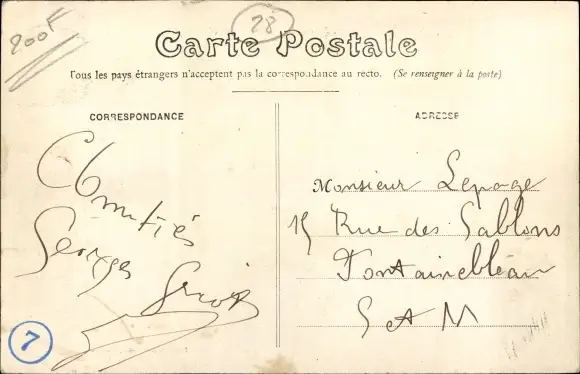 200F
28
Carte Postale
Tous les pays étrangers n'acceptent pas la correspondance au recto. (Se renseigner à la poste)
CORRESPONDANCE
ADRESSE
Georges
Monsieur Lepage
15 Rue des Sablons
Fontainebleau
S et M
7